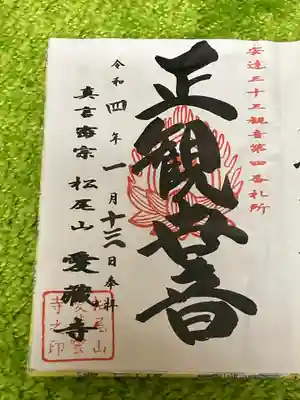 安達三十三観音第四番札所
正観世音
令和四年一月十三日奉拝
真言宗 松尾山 愛蔵寺
松尾山
愛蔵
寺之印